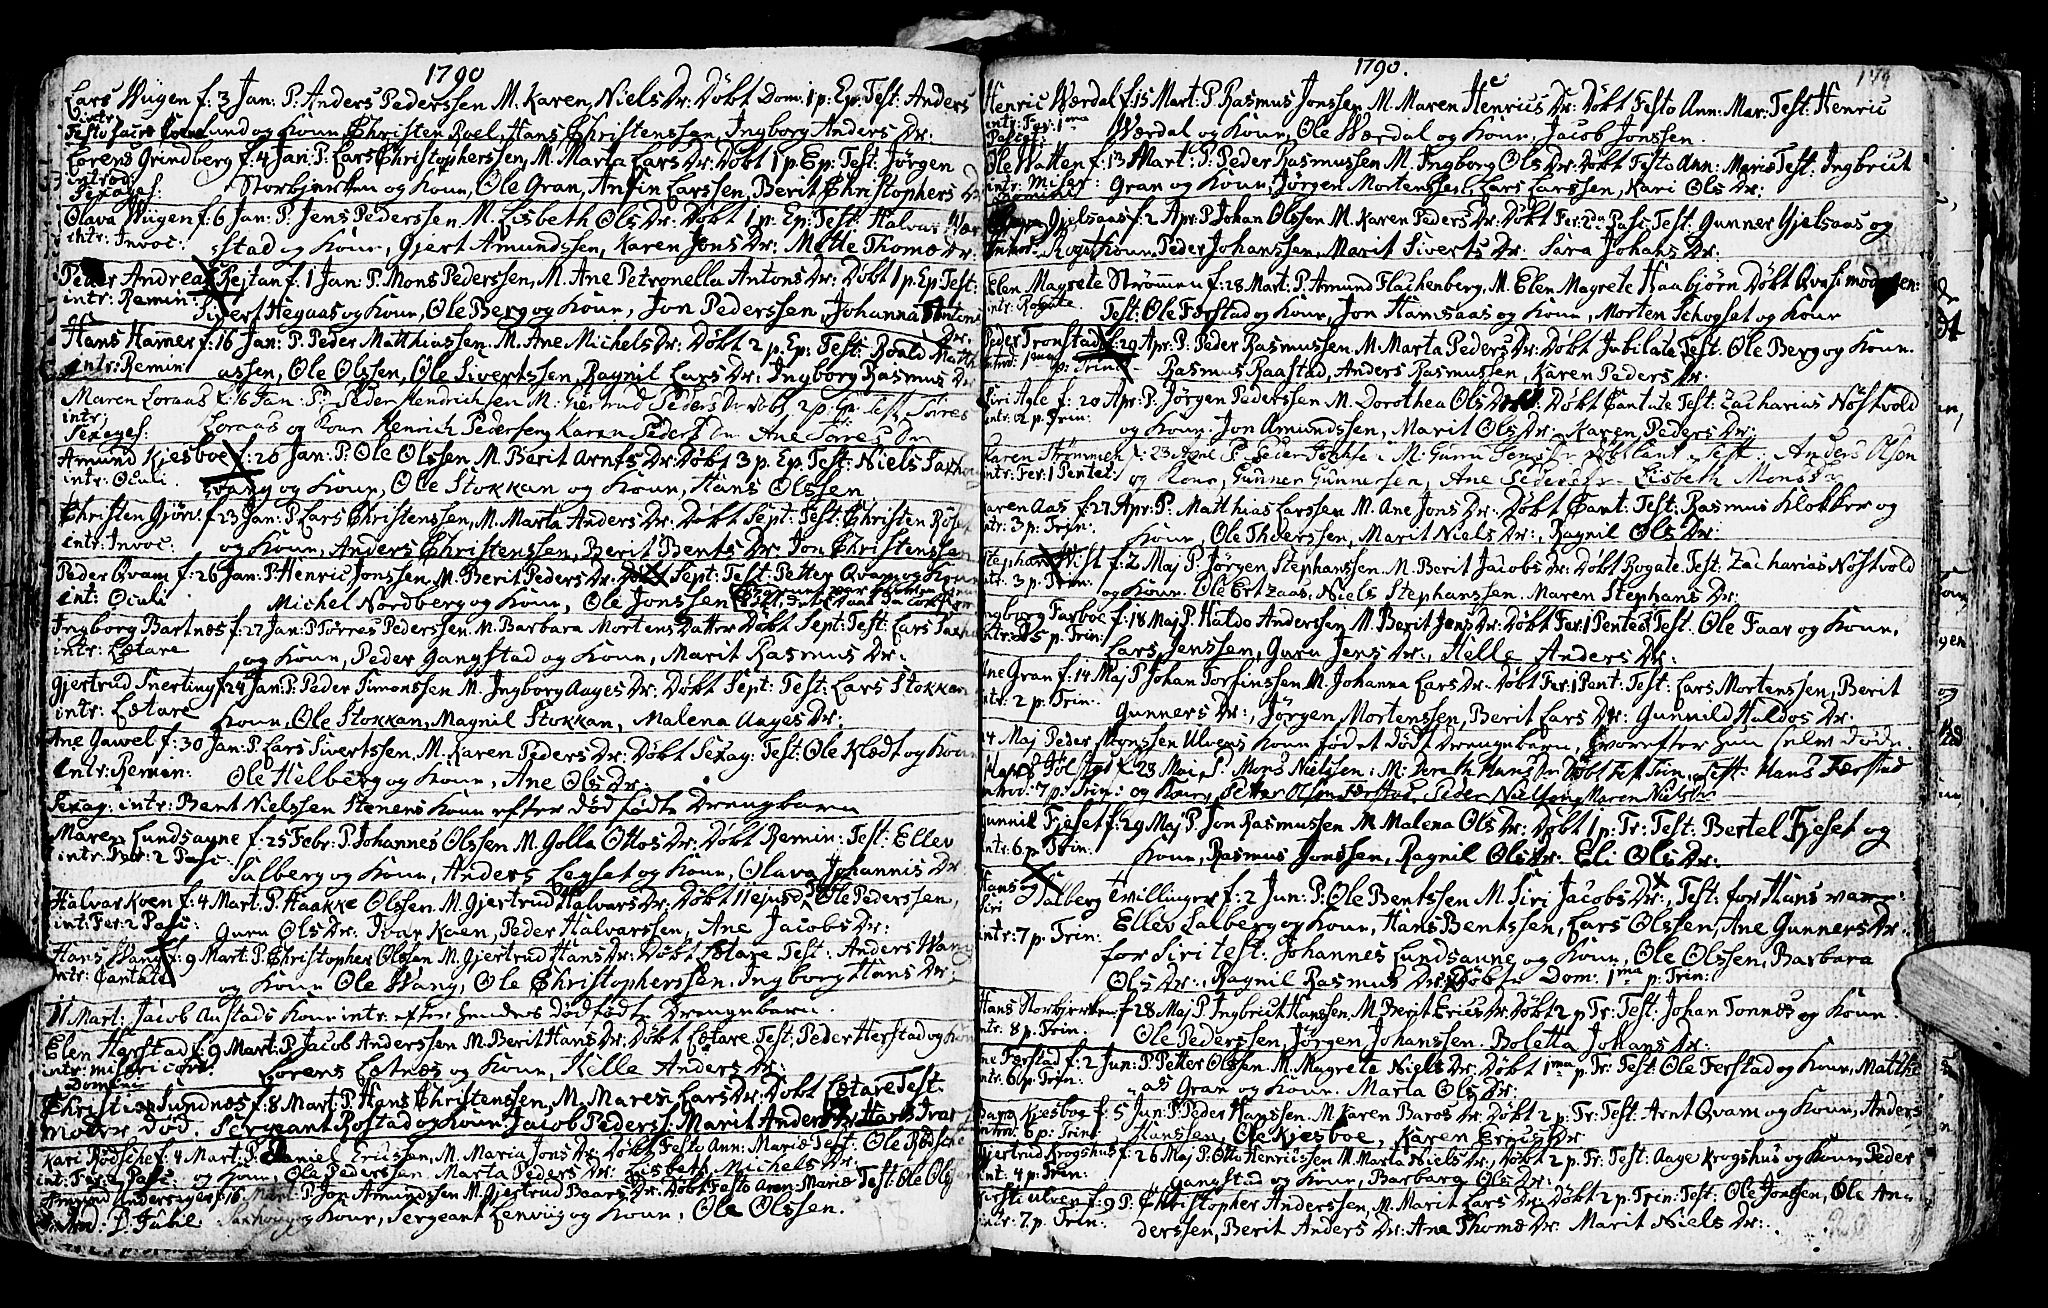 1790
Lars Wiigen f: 3 Jan: P. Anders Pederssen M. Karen Niels Dr: Döbt Dom: 1 p: Ep: Test: Anders
intr:
Festo Lund og Kone, Christen Roel, Hans Christenssen, Ingborg Anders Dr:
Lorens Grindberg f: 4 Jan: P: Lars Christopherssen, M. Marta Lars Dr: Döbt 1 p: Ep: Test: Jörgen
introd: Storbjerken og Kone, Ole Gran, Anfin Larssen, Berit Christophers Dr
Sexages:
Olava Wiigen f: 6 Jan: P: Jens Pederssen M. Lisbeth Ols Dr: Döbt 1 p: Ep: Test: Halvor Wær
intr: Invoc: stad og Kone, Gjert Amundssen, Karen Jens Dr: Mette Thomæ Dr:
Peder Andreas Rejtan f: 1 Jan: P: Mons Pederssen, M. Ane Petronella Antons Dr: Döbt 1 p: Ep Test:
intr: Remin: Sivert Hegaas og Kone, Ole Berg og Kone, Jon Pederssen, Johanna Antons
Dr:
Hans Hamer f: 16 Jan: P. Peder Matthiassen M. Ane Michels Dr: Döbt 2 p: Ep: Test: Roald Matthi
intr: Remin assen, Ole Olssen, Ole Sivertssen, Ragnil Lars Dr: Ingborg Rasmus Dr
Maren Loraas f: 16 Jan: P: Peder Hendrichsen M: Giertrud Peders Dr Döbt 2 p: Ep: Test: Törres
intr: Loraas og Kone Henrich Pedersen, Karen Peders Dr Ane Törres Dr
Sexages:
Amund Kjesboe f: 20 Jan: P. Ole Olssen M. Berit Arnts Dr: Döbt 3 p: Ep: Test: Niels Saxhou
intr: Oculi: Qvang og Kone, Ole Stokkan og Kone, Hans Olssen
Christen Gjörv f: 23 Jan: P. Lars Christenssen, M. Marta Anders Dr: Döbt Sept: Test: Christen Röset
intr: Invoc: og Kone, Anders Christenssen, Berit Bents Dr: Jon Christenssen
Peder Qvam f: 26 Jan: P. Henric Jonssen M. Berit Peders Dr: Döbt Sept: Test: Petter Qvam og Kone
int: Oculi Michel Nordberg og Kone, Ole Jonssen
Ingborg Bartnæs f: 27 Jan: P Törres Pederssen M. Barbara Mortens Datter Döbt Sept: Test: Lars Saxhou
intr: Lætare og Kone, Peder Gangstad og Kone, Marit Rasmus Dr:
Gjertrud Snerting f: 24 Jan: P: Peder Simonssen M. Ingborg Aages Dr: Döbt Sept: Test: Lars Stokkan
intr: Lætare Kone, Ole Stokkan, Magnil Stokkan, Malena Aages Dr:
Ane Gawel f: 30 Jan: P. Lars Sivertssen M. Karen Peders Dr: Döbt Sexag: Test: Ole Klædt og Kone
intr: Remin: Ole Helberg og Kone, Ane Ols Dr:
Sexag: intr: Bent Nielssen Stenens Kone efter död födte Drengebarn
Maren Lundsaune f: 25 Febr: P. Johannes Olssen M. Golla Ottos Dr: Döbt Remin: Test: Ellev
intr: Fer: 2 Pasc: Salberg og Kone, Anders Legset og Kone, Olava Johannis Dr
Halvar Koen f: 4 Mart: P. Haakke Olssen M. Gjertrud Halvars Dr: Döbt Hejusd: Ole Pederssen,
int: Fer: 2 Pasc: Guru Ols Dr: Ivar Koen, Peder Halvarssen, Ane Jacobs Dr:
Hans Wang f: 9 Mart: P. Christopher Olssen M. Gjertrud Hans Dr: Döbt Lætare Test: Anders Wang
intr: Cantate og Kone Ole Wang, Ole Christopherssen, Ingborg Hans Dr:
11 Mart: Jacob Austads Kone intr: efter hendes dödfödte Drengebarn.
Elen Herstad f: 9 Mart: P. Jacob Anderssen M. Berit Hans Dr: Döbt Lætare Test: Peder Herstad og Kone
intr: misericord: Lorens Letnæs og Kone, Helle Anders Dr:
Domini
Christian Sundnæs f: 8 Mart: P. Hans Christenssen, M. Maren Lars Dr: Döbt Lætare Test:
Moder död. Sergeant Rostad og Kone Jacob Peders: Marit Anders Dr: Hans Ivar
Kari Rödschef f: 4 Mart: P. Daniel Ericssen, M. Maria Jons Dr: Döbt Festo Ann: Mariæ Test: Ole Rödsche
int: Fer: 2 Pasc: og Kone, Ole Pederssen Marta Peders Dr: Lisbeth Michels Dr:
Amund Andersager f: 16 Mart: P. Jon Amundssen M. Gjertrud Baars Dr: Döbt Festo Ann: Mariæ Test: Ole Ols
D. Jubil: Saxhoug og Kone, Sergeant Lenviig og Kone, Ole Olssen.
1790.
Henric Værdal f: 15 Mart: P. Rasmus Jonssen M. Maren Henrics Dr: Döbt Festo Ann: Mar: Test: Henric
intr: Fer: 1ma Værdal og Kone, Ole Værdal og Kone, Jacob Jonssen.
Pascat:
Ole Watten f: 13 Mart: P: Peder Rasmussen M. Ingborg Ols Dr: Döbt Festo Ann: Mariæ Test: Ingbrict
intr: Miser: Gran og Kone, Jörgen Mortenssen, Lars Larssen, Kari Ols Dr:
Domini
Gjelsaas f: 2 Apr: P Johan Olssen M. Karen Peders Dr: Döbt Fer: 2da Pasc: Test: Gunner Gjelsaas og
Rogate Kone, Peder Johanssen, Marit Siverts Dr: Sara Johans Dr:
Elen Magrete Strömmen f: 28 Mart: P. Amund Flachenberg, M. Elen Magrete Haabjörn Döbt Qvasimodogen:
intr: Rogate Test: Ole Færstad og Kone, Jon Hamsaas og Kone, Morten Schogset og Kone
Peder Tronstad f: 29 Apr: P: Peder Rasmussen M. Marta Peders Dr: Döbt Jubilate Test: Ole Berg og Kone.
introd: 1ma p: Trin: Rasmus Raastad, Anders Rasmussen, Karen Peders Dr:
Siri Agle f: 20 Apr: P. Jörgen Pederssen M. Dorothea Ols Dr: Döbt Cantate Test: Zacharias Nöstvold
intr: 2 p: Trin: og Kone. Jon Amundssen, Marit Ols Dr: Karen Peders Dr:
Karen Strömmen f: 23 April P. Peder M: Guru Jens Dr Döbt Cant: Test: Anders Olsen
intr: Fer: 1 Pentec: og Kone, Gunner Gunnersen, Ane Peders Dr Lisbeth Mons Dr
Karen Aas f: 27 Apr: P: Matthias Larssen M. Ane Jons Dr: Döbt Cant: Test: Rasmus Klokker og
intr: 3 p: Trin: Kone, Ole Thderssen, Marit Niels Dr:, Ragnil Ols Dr:
Stephan Vist f: 2 Maj P: Jörgen Stephanssen M. Berit Jacobs Dr: Döbt Rogate Test: Zacharias Nöstvold
intr: 3 p: Trin: og Kone. Ole Ertzaas, Niels Stephanssen. Maren Stephans Dr:
Ingborg Farboe f: 18 Maj P. Haldo Anderssen M. Berit Jens Dr: Döbt Fer: 1 Pentec Test: Ole Faar og Kone.
intr: 5 p: Trin: Lars Jenssen, Guru Jens Dr:, Helle Anders Dr:
Ane Gran f: 14 Maj P Johan Torfinssen M. Johanna Lars Dr: Döbt Fer: 1 Pent: Test: Lars Mortenssen, Berit
intr: 2 p: Trin: Gunners Dr:, Jörgen Mortenssen, Berit Lars Dr: Gunnild Haldos Dr:
14 Maj Peder Monssen Ulvens Kone föd et dödt Drengebarn, hvorefter hun selv döde.
Hans Hol f: 23 Maj P: Mons Nielssen: M: Dorath Hans Dr Döbt Fest Trin, Test: Hans Færstad
introd: 7 p: Trin: og Kone, Petter Olsen Færstad, Peder Nielsen, Maren Niels Dr
Gunnil Fjeset f: 29 Maj P Jon Rasmussen M. Malena Ols Dr: Döbt 1 p: Tr: Test: Bertel Fjeset og
intr: 6 p: Trin: Kone, Rasmus Jonssen, Ragnil Ols Dr: Eli Ols Dr:
Hans og Siri Salberg tvillinger f: 2 Jun: P: Ole Bentssen M. Siri Jacobs Dr:, Test: for Hans vare:
Ellev Salberg og Kone, Hans Bentssen, Lars Olssen, Ane Gunners Dr.
intr: 7 p: Trin: for Siri test: Johannes Lundsaune og Kone, Ole Olssen, Barbara
Ols Dr:, Ragnil Rasmus Dr: Döbte Dom: 1ma p: Trin:
Hans Storbjerken f: 28 Maj P. Ingbrict Hanssen M. Berit Erics Dr: Döbt 2 p Tr: Test: Johan Tonnæs og Kone
intr: 8 p: Trin: Ole Pederssen, Jörgen Johanssen. Boletta Johans Dr:
Ane Færstad f: 2 Jun: P: Petter Olssen M. Magrete Niels Dr: Döbt 1ma p: Tr: Test: Ole Ferstad og Kone, Matthi
intr: 6 p: Trin: as Gran og Kone. Marta Ols Dr:
Kjesboe f: 5 Jun: P: Peder Hanssen. M. Karen Baros Dr: Döbt 2 p: Tr: Test: Arnt Qvam og Kone, Anders
introd: 6 p: Trin: Hanssen, Ole Kjesboe, Karen Erics Dr
Gjertrud Krogshus f: 26 Maj P. Otto Henricssen M. Marta Niels Dr:, Döbt 2 p: Tr: Test: Aage Krogshus og Kone, Peder
int: 4 p: Trin: Gangstad og Kone, Barbara Ols Dr:
Kirsti Ulven f: 9 P. Christopher Anderssen, M. Marit Lars Dr: Döbt 2 p: Trin: Test: Ole Jonssen, Ole An-
intr: 7 p: Trin: derssen, Berit Anders Dr: Ane Thomæ Dr: Marit Niels Dr:.